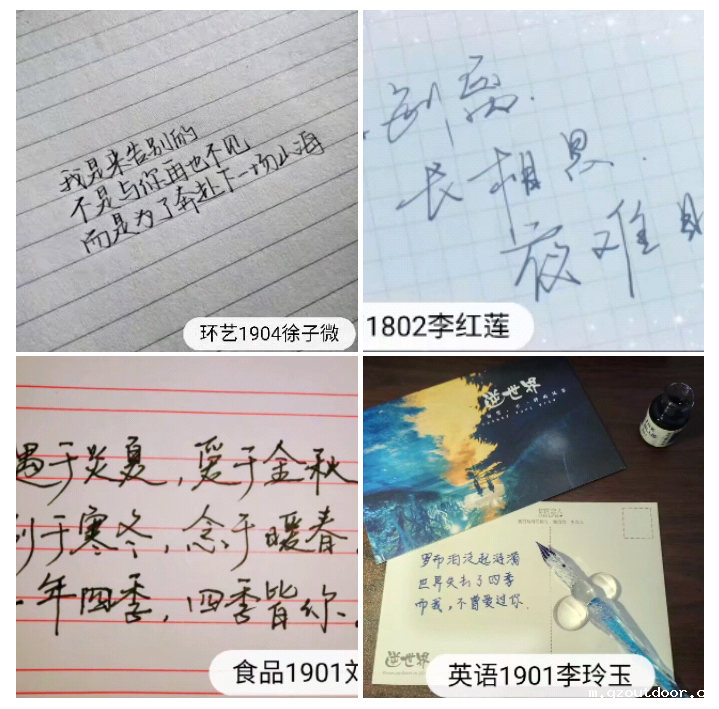 我是来告别的
不是与你再也不见
而是为了奔赴下一场山海
环艺1904徐子微
别离.
长相思.
夜难
1802李红莲
遇于炎夏,爱于金秋
于寒冬,念于暖春.
年四季,四季皆你.
食品1901刘
逆世界
罗布泊泛起涟漪
世界失去了四季
而我,不曾爱过你.
逆世界
英语1901李玲玉
m.qzoutdoor.c